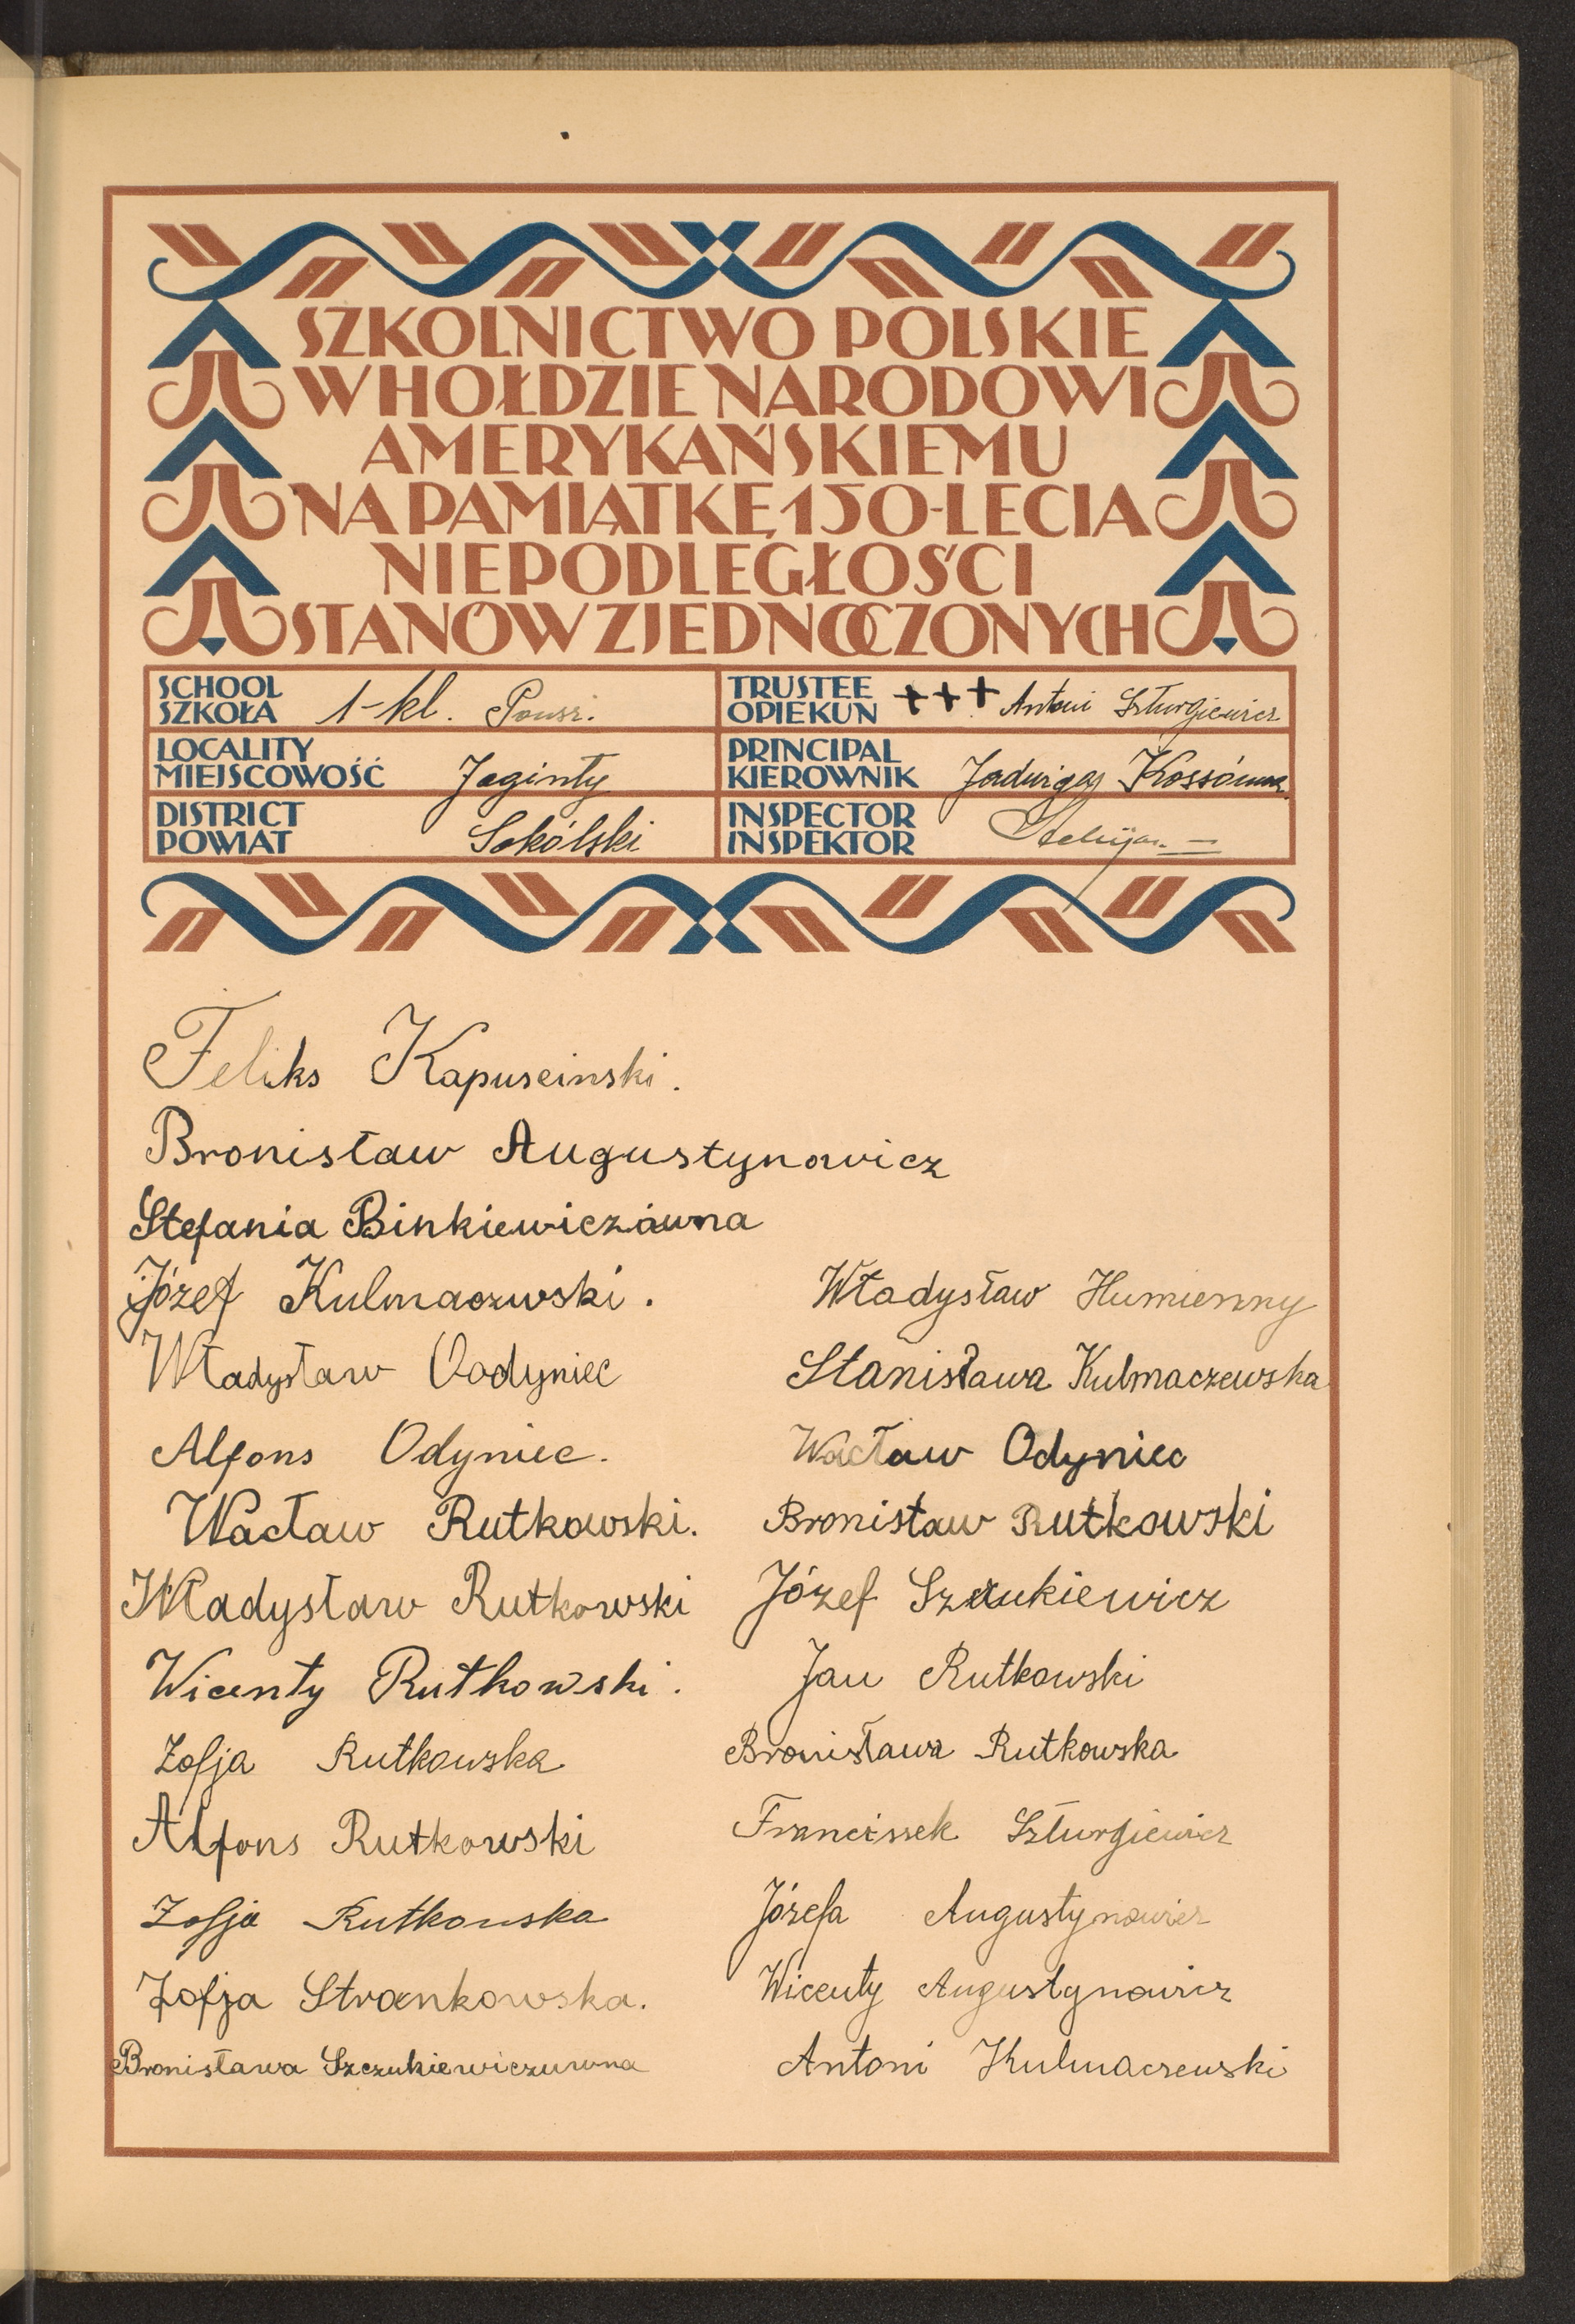 SZKOLNICTWO POLSKIE
W HOŁDZIE NARODOWI
AMERYKAŃSKIEMU
NA PAMIĄTKĘ 150-LECIA
NIEPODLEGŁOŚCI
STANÓW ZJEDNOCZONYCH
SCHOOL
SZKOŁA 1-kl. Powsz.
TRUSTEE
OPIEKUN +++ Antoni Szturgiewicz
LOCALITY
MIEJSCOWOŚĆ Jaginty
PRINCIPAL
KIEROWNIK Jadwiga Kossówna
DISTRICT
POWIAT Sokólski
INSPECTOR
INSPEKTOR
Feliks Kapuscinski.
Bronisław Augustynowicz
Stefania Binkiewiczówna
Józef Kulmaczwski.
Władysław Oodyniec
Alfons Odyniec.
Wacław Rutkowski.
Władysław Rutkowski
Wicenty Rutkowski.
Zofja Rutkowska
Alfons Rutkowski
Zofja Rutkowska
Zofja Strankowska.
Bronisława Szczukiewiczuwna
Władysław Humienny
Stanisława Kulmaczewska
Wacław Odyniec
Bronisław Rutkowski
Józef Szczukiewicz
Jan Rutkowski
Bronisława Rutkowska
Franciszek Szturgiewicz
Józefa Augustynowicz
Wicenty Augustynowicz
Antoni Kulmaczewski